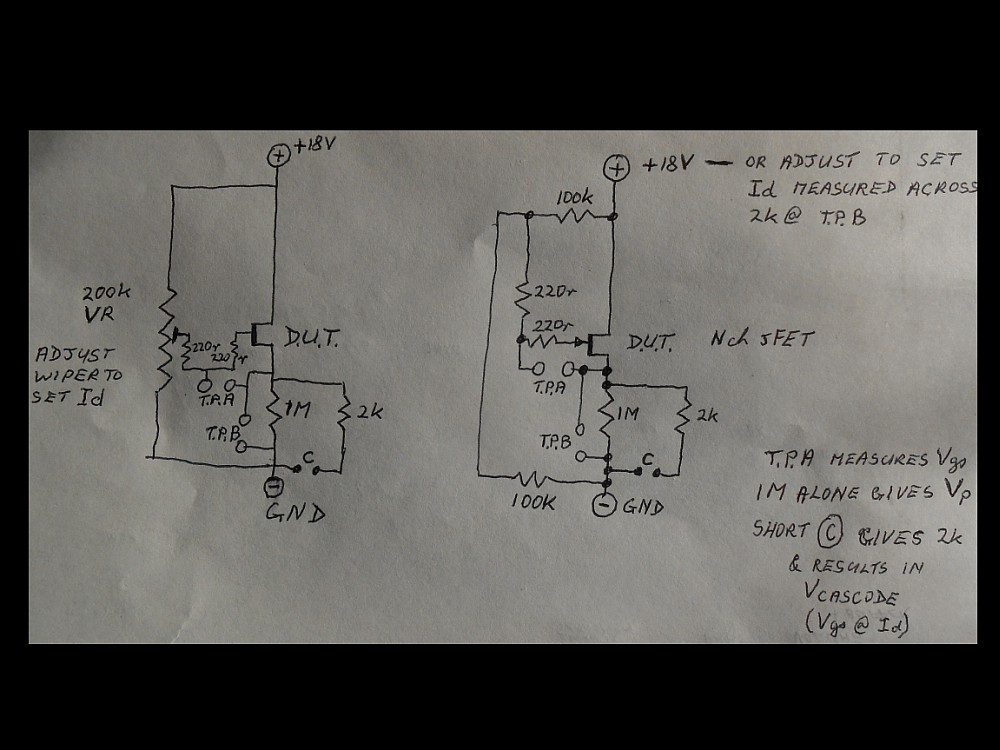 +18V
200k
VR
ADJUST
WIPER TO
SET Id
220r
220
r
D.U.T.
T.P.A
T.P.B
1M
2k
C
GND
+18V — OR ADJUST TO SET
Id MEASURED ACROSS
2k @ T.P.B
100k
220r
220r
D.U.T. Nch JFET
T.P.A
1M
2k
T.P.B
C
100k
GND
T.P.A MEASURES Vgs
1M ALONE GIVES Vp
SHORT C GIVES 2k
& RESULTS IN
VCASCODE
(Vgs @ Id)